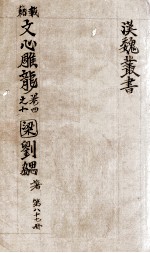 漢魏叢書
載籍
文心雕龍
卷四
之十
梁劉勰著
第八十七册